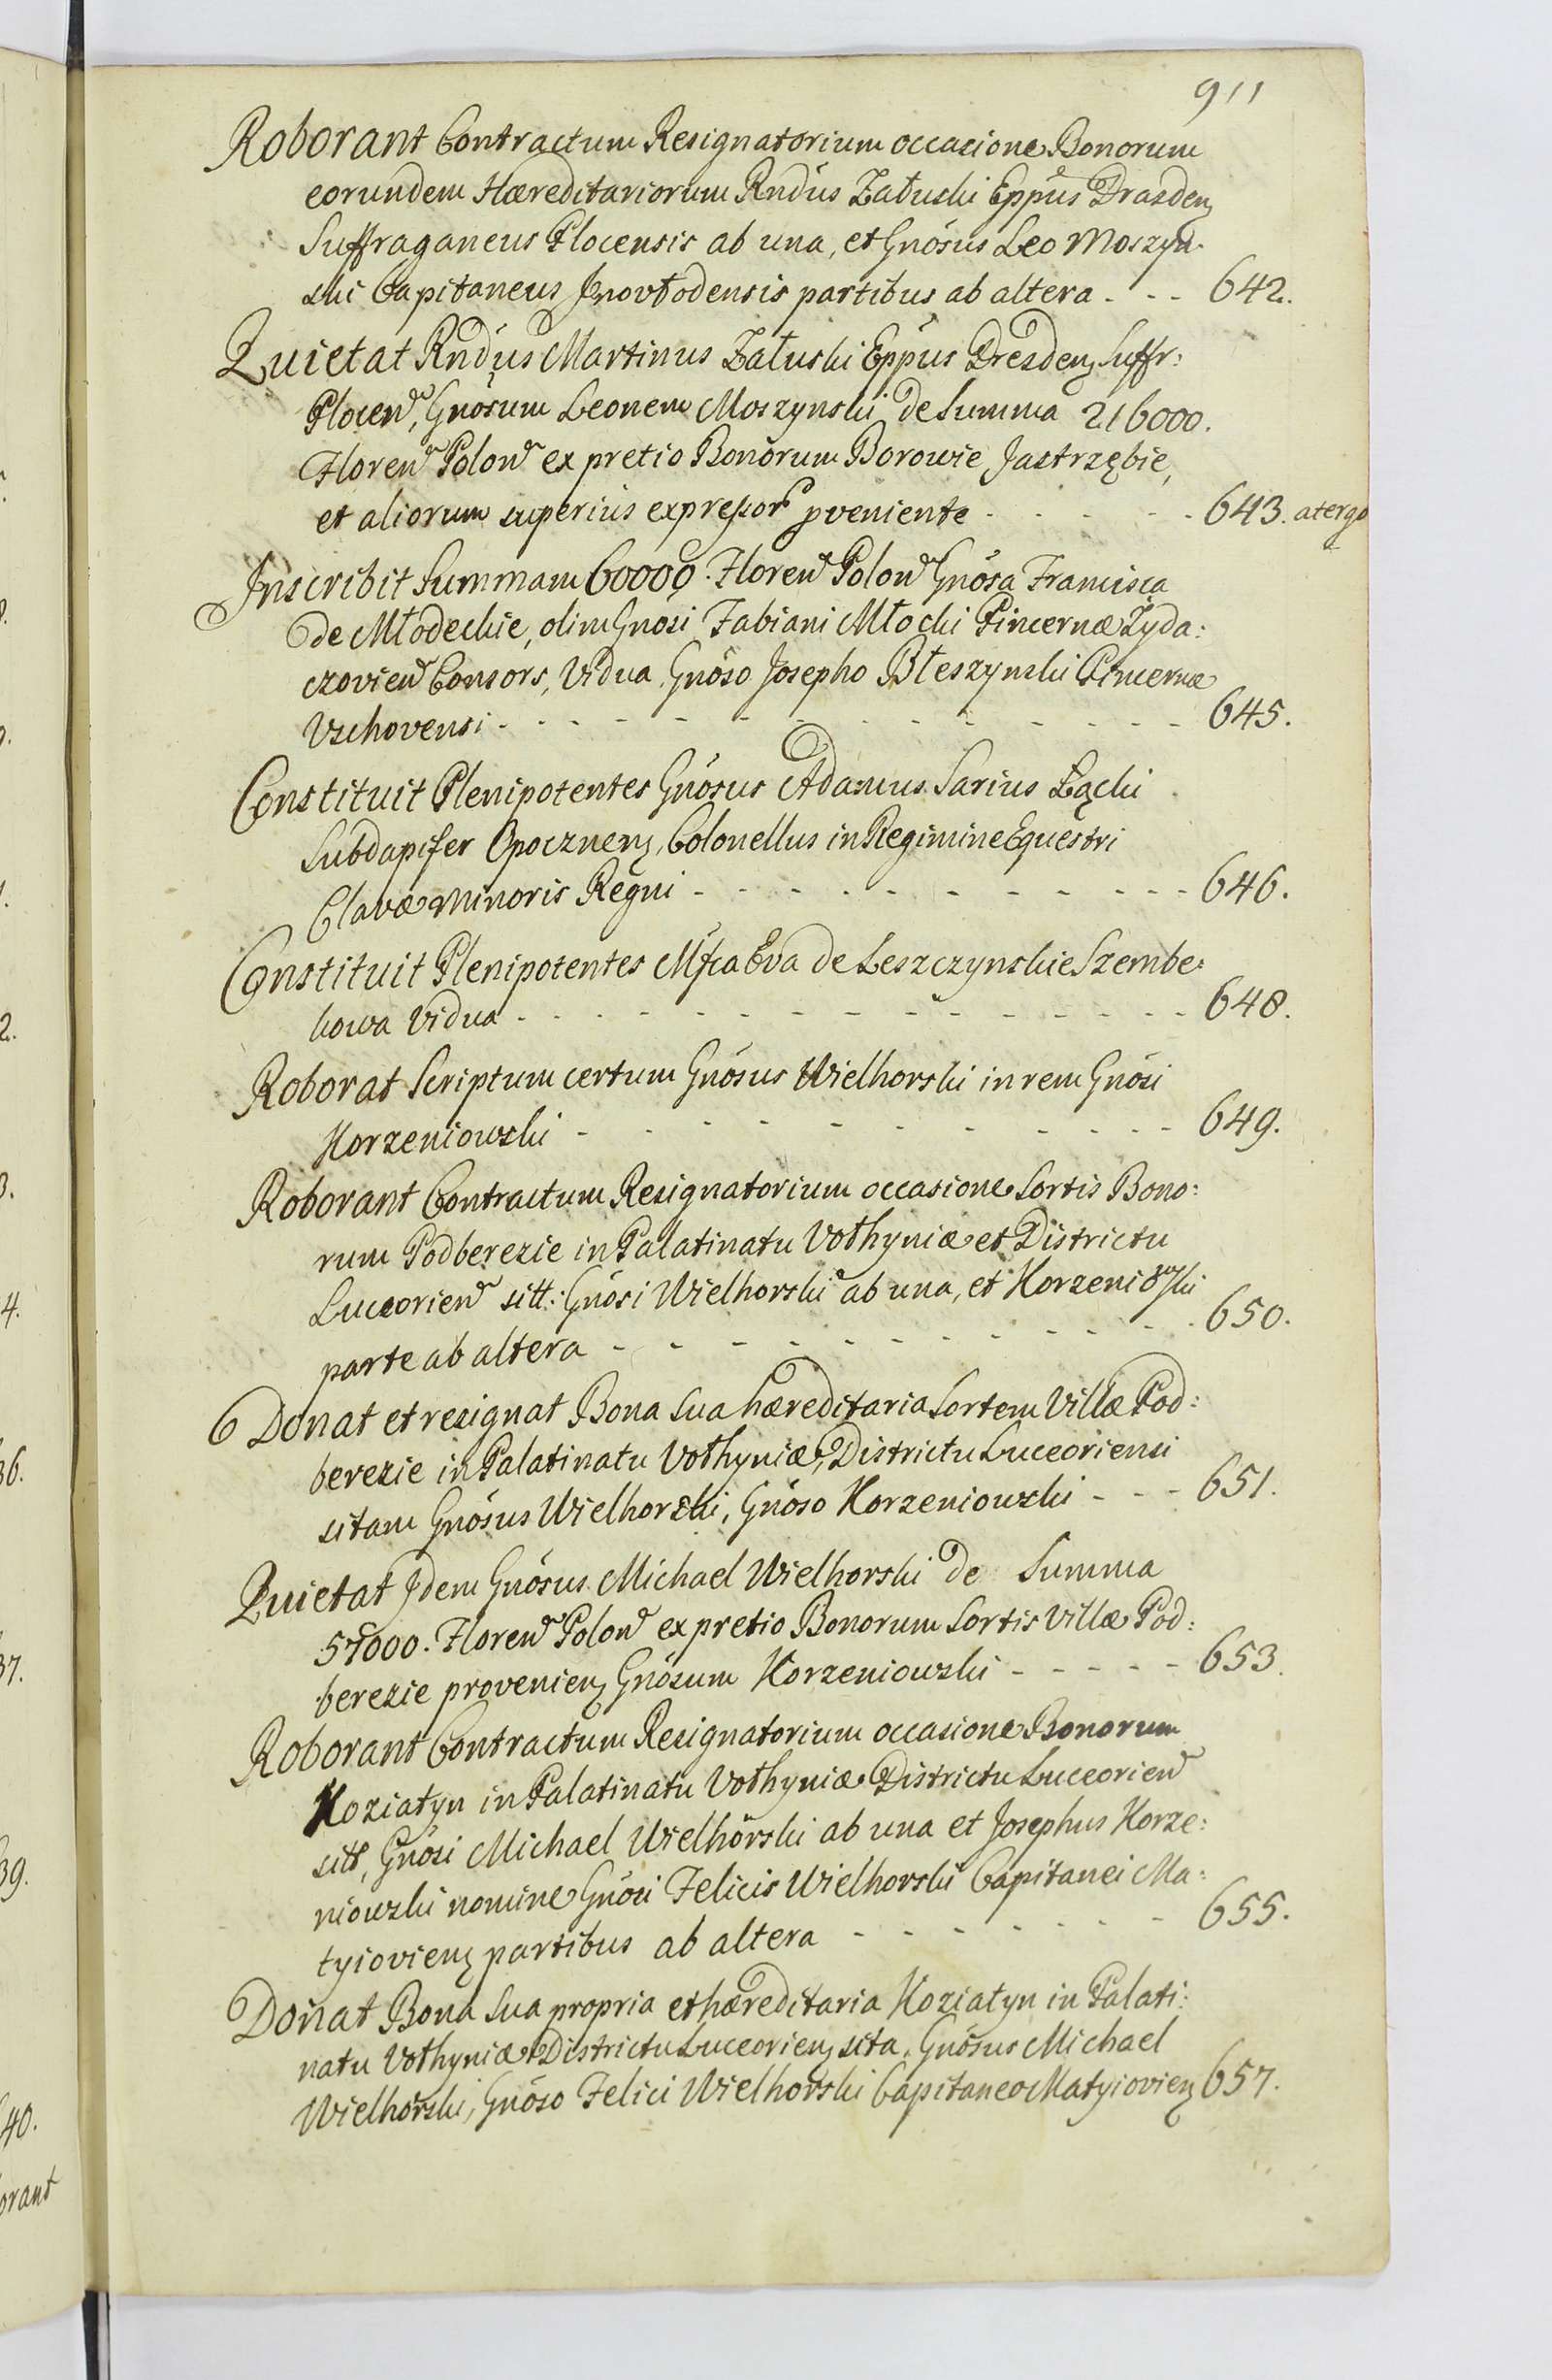 911
Roborant Contractum Resignatorium occasione Bonorum
eorundem Hæreditariorum Rndus Załuski Eppus Drasdenʒ
Suffraganeus Plocensis ab una, et Gnosus Leo Moszyń-
ski Capitaneus Inovłodensis partibus ab altera - - - 642.
Quietat Rndus Martinus Załuski Eppus Dresdenʒ Suffr:
Plocen, Gnosum Leonem Moszynski de Summa 216000.
Floren Polon ex pretio Bonorum Borowie Jastrzębie,
et aliorum superius expressor pveniente - - - - - 643. atergo
Inscribit Summam 60000. Floren Polon Gnosa Francisca
de Młodeckie, olim Gnosi Fabiani Młocki Pincernæ Zyda:
czovien Consors, Vidua, Gnoso Josepho Błeszynski Pincernæ
Vschovensi - - - - - - - - - - - 645.
Constituit Plenipotentes Gnosus Adamus Sarius Łącki
Subdapifer Opocznenʒ, Colonellus in Regimine Equestri
Clavæ Minoris Regni - - - - - - - - - - 646.
Constituit Plenipotentes Mfca Eva de Leszczynskie Szembe:
kowa Vidua - - - - - - - - - - - - 648.
Roborat Scriptum certum Gnosus Wielhorski in rem Gnosi
Korzeniowski - - - - - - - - - - 649.
Roborant Contractum Resignatorium occasione Sortis Bono:
rum Podberezie in Palatinatu Vołhyniæ et Districtu
Luceorien sitt: Gnosi Wielhorski ab una, et Korzeniowski
parte ab altera - - - - - - - - - - 650.
Donat et resignat Bona sua hæreditaria Sortem Villæ Pod:
berezie in Palatinatu Vołhyniæ, Districtu Luceoriensi
sitam Gnosus Wielhorski, Gnoso Korzeniowski - - - 651.
Quietat Idem Gnosus Michael Wielhorski de Summa
57000. Floren Polon ex pretio Bonorum Sortis Villæ Pod:
berezie provenienʒ Gnosum Korzeniowski - - - - - 653.
Roborant Contractum Resignatorium occasione Bonorum
Koziatyn in Palatinatu Vołhyniæ Districtu Luceorien
sitt, Gnosi Michael Wielhorski ab una et Josephus Korze:
niowski nomine Gnosi Felicis Wielhorski Capitanei Ma:
tyiovienʒ partibus ab altera - - - - - - - 655.
Donat Bona sua propria et hæreditaria Koziatyn in Palati:
natu Vołhyniæ Districtu Luceorienʒ sita, Gnosus Michael
Wielhorski, Gnoso Felici Wielhorski Capitaneo Matyiovienʒ 657.